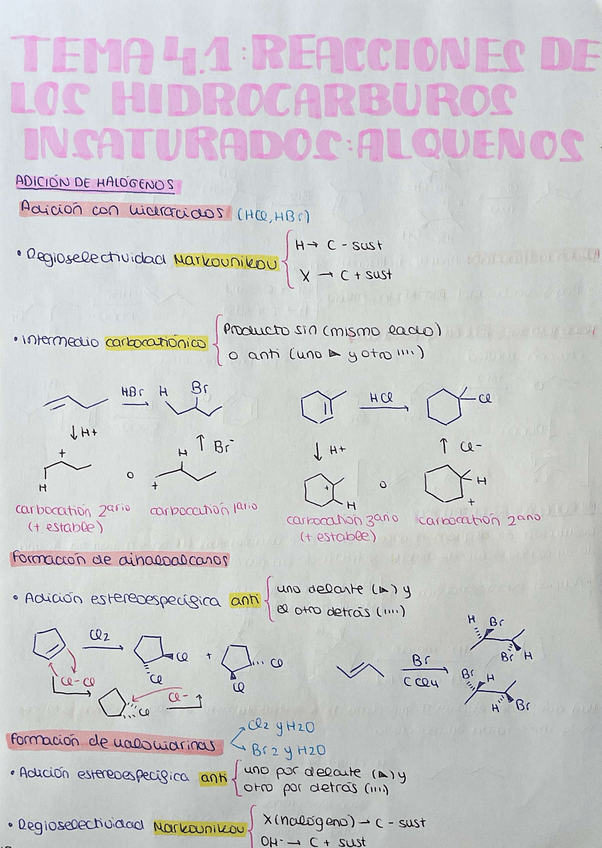 TEMA 4.1: REACCIONES DE
LOS HIDROCARBUROS
INSATURADOS: ALQUENOS
ADICIÓN DE HALÓGENOS
Adición con hidrácidos (HCl, HBr)
• Regioselectividad Markovnikov
H → C - sust
X → C + sust
• Intermedio carbocatiónico
Producto sin (mismo lado)
o anti (uno ▲ y otro ıııı)
HBr
H
Br
HCl
Cl
↓ H+
↑ Br⁻
↓ H+
↑ Cl-
+
H
o
H
+
+
H
o
H
+
carbocatión 2ario
(+ estable)
carbocatión 1ario
carbocatión 3ario
(+ estable)
carbocatión 2ario
Formación de dihaloalcanos
• Adición estereoespecífica anti
uno delante (▲) y
el otro detrás (ıııı)
Cl2
Cl
Cl
+
Cl
Cl
Cl-Cl
Cl
Cl-
Br
CCl4
H
Br
Br
H
Br
H
H
Br
Formación de halohidrinas
Cl2 y H2O
Br2 y H2O
• Adición estereoespecífica anti
uno por delante (▲) y
otro por detrás (ıııı)
• Regioselectividad Markovnikov
X (halógeno) → C - sust
OH- → C + sust